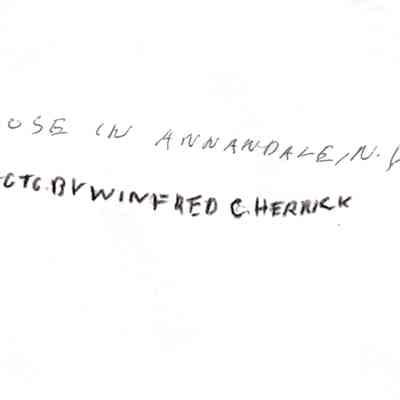 OSE IN ANNANDALE, N.Y
CTG. BY WINFRED C. HERRICK